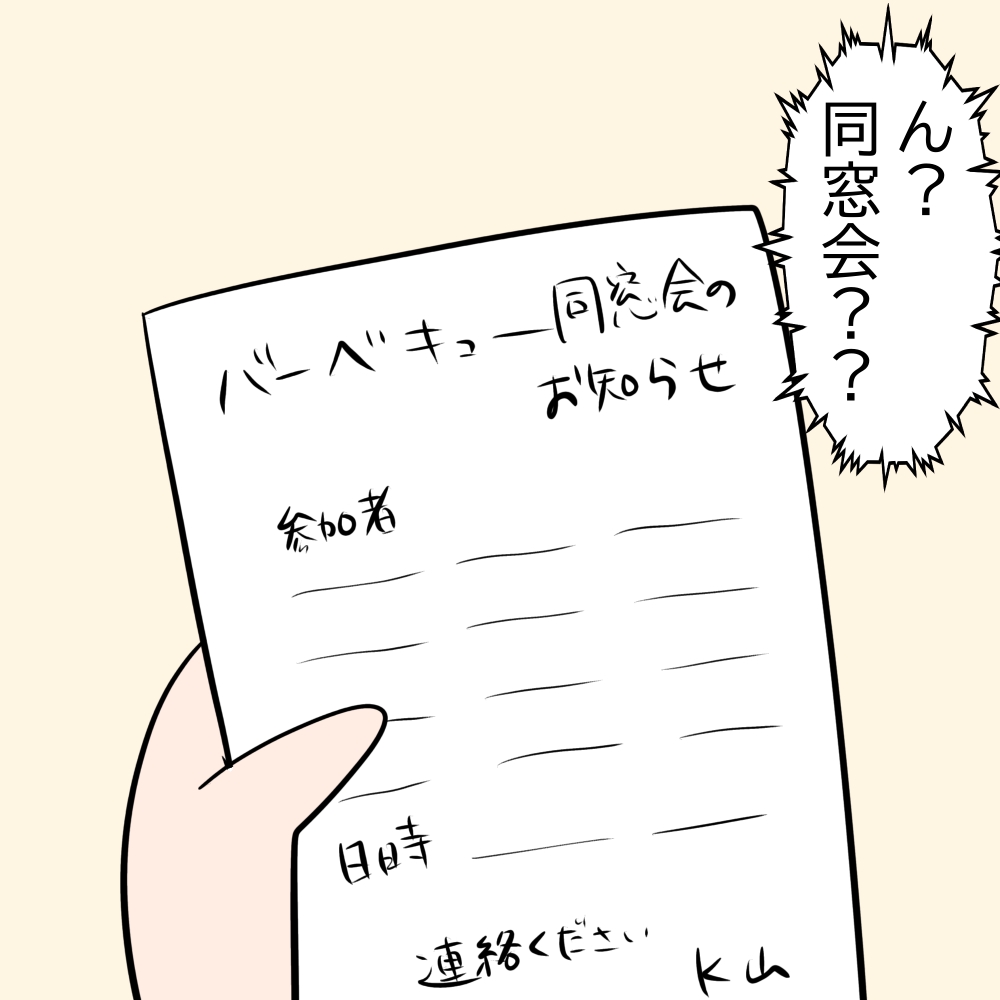 ん?
同窓会??
バーベキュー同窓会の
お知らせ
参加者
日時
連絡ください
K山